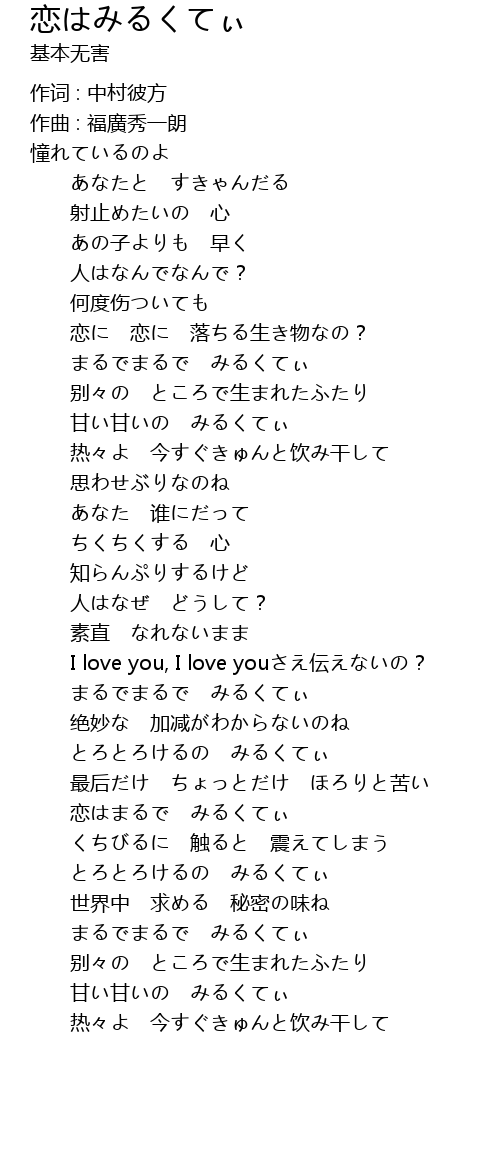 恋はみるくてぃ
基本无害
作词 : 中村彼方
作曲 : 福廣秀一朗
憧れているのよ
あなたと　すきゃんだる
射止めたいの　心
あの子よりも　早く
人はなんでなんで？
何度伤ついても
恋に　恋に　落ちる生き物なの？
まるでまるで　みるくてぃ
别々の　ところで生まれたふたり
甘い甘いの　みるくてぃ
热々よ　今すぐきゅんと饮み干して
思わせぶりなのね
あなた　谁にだって
ちくちくする　心
知らんぷりするけど
人はなぜ　どうして？
素直　なれないまま
I love you, I love youさえ伝えないの？
まるでまるで　みるくてぃ
绝妙な　加减がわからないのね
とろとろけるの　みるくてぃ
最后だけ　ちょっとだけ　ほろりと苦い
恋はまるで　みるくてぃ
くちびるに　触ると　震えてしまう
とろとろけるの　みるくてぃ
世界中　求める　秘密の味ね
まるでまるで　みるくてぃ
别々の　ところで生まれたふたり
甘い甘いの　みるくてぃ
热々よ　今すぐきゅんと饮み干して